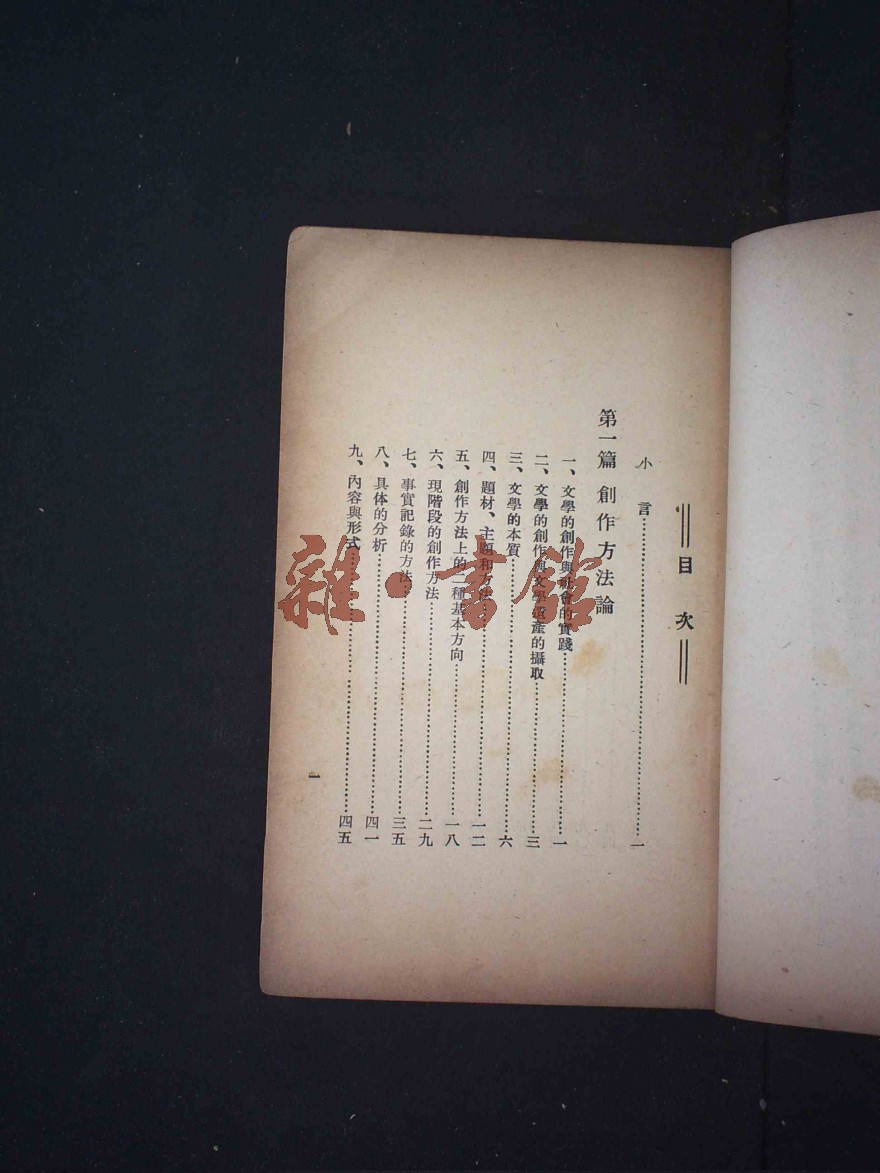 目次
小言……一
第一篇 創作方法論
一、文學的創作與社會的實踐……一
二、文學的創作與文學遺產的攝取……三
三、文學的本質……六
四、題材、主題和方法……一二
五、創作方法上的二種基本方向……一八
六、現階段的創作方法……二九
七、事實記錄的方法……三五
八、具体的分析……四一
九、內容與形式……四五
一
雜·書館